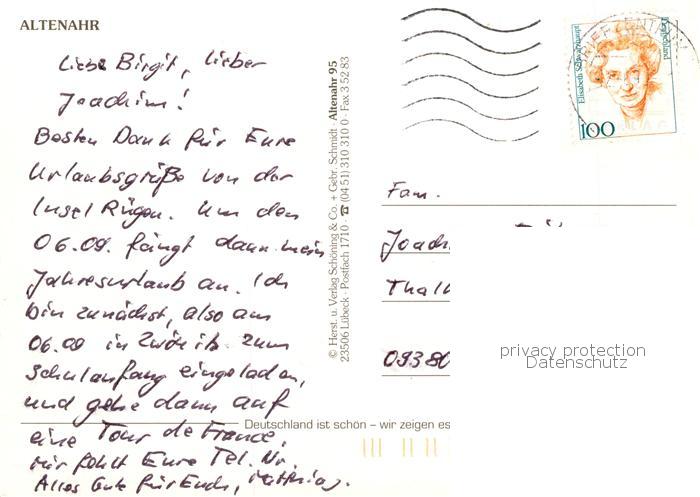 ALTENAHR
Liebe Birgit, lieber
Joachim!
Besten Dank für Eure
Urlaubsgrüße von der
Insel Rügen. Um den
06.09. fängt dann mein
Jahresurlaub an. Ich
bin zunächst, also am
06.09 in Zwönitz zum
Schulanfang eingeladen,
und gehe dann auf
eine Tour de France.
Mir fehlt Eure Tel. Nr.
Alles Gute für Euch, Matthias.
© Herst. u. Verlag Schöning & Co. + Gebr. Schmidt · Altenahr 95
23506 Lübeck · Postfach 1710 · ☎ (04 51) 310 310 0 · Fax 3 52 83
Deutschland ist schön – wir zeigen es
Elisabeth Schwarzhaupt
Deutschland
100
BRIEFZENTRUM
Fam.
Joach
Thalh
09380
privacy protection
Datenschutz